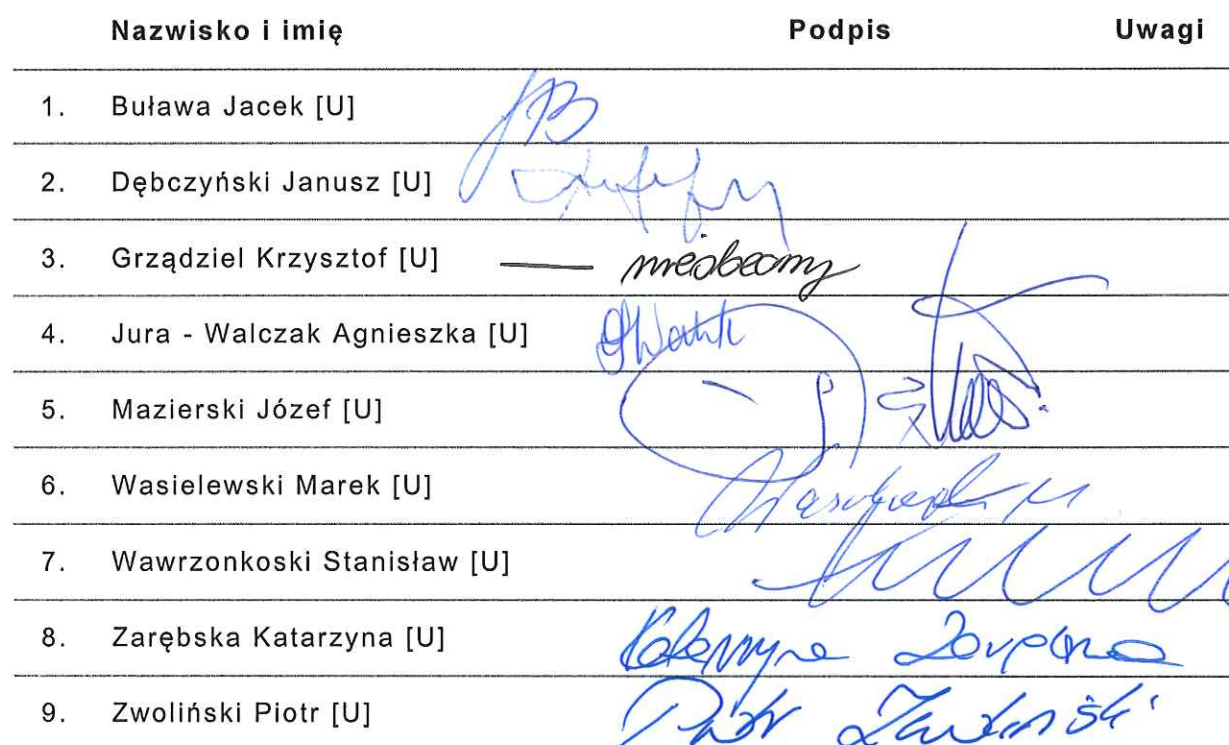 Nazwisko i imię Podpis Uwagi
1. Buława Jacek [U] JB
2. Dębczyński Janusz [U]
3. Grządziel Krzysztof [U] — nieobecny
4. Jura - Walczak Agnieszka [U]
5. Mazierski Józef [U]
6. Wasielewski Marek [U]
7. Wawrzonkoski Stanisław [U]
8. Zarębska Katarzyna [U] Katarzyna Zarębska
9. Zwoliński Piotr [U] Piotr Zwoliński